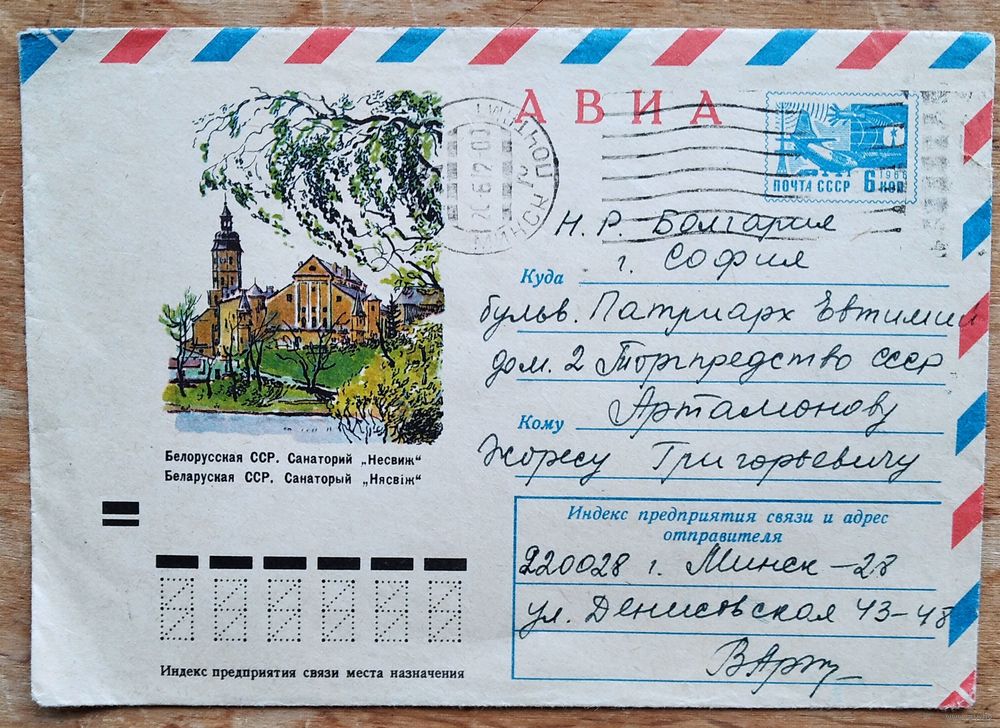 АВИА
МИНСК ПОЧТАМТ
20.6.12 03
1966
ПОЧТА СССР 6 КОП
Н. Р. Болгария
Куда г. София
бульв. Патриарх Евтимии
дом. 2 Торгпредство СССР
Кому Артамонову
Жоржу Григорьевичу
Белорусская ССР. Санаторий „Несвиж“
Беларуская ССР. Санаторый „Нясвіж“
Индекс предприятия связи и адрес
отправителя
220028 г. Минск-28
ул. Денисовская 43-48
Индекс предприятия связи места назначения